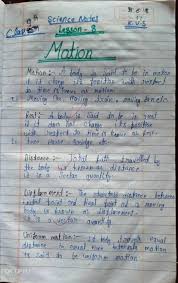 9th
Science Notes
Chapter
Lesson - 8
K.V.S
Motion
Motion :- A body is said to be in motion
if it change its position with respect
to time is known as motion
Moving Car, Moving train, moving bicycle
Rest :- A body is said to be in rest
if it do not change its position
with respect to time is known as rest
Tree, House, bridge etc.
Distance :- Total path travelled by
the body is known as distance
is a scalar quantity
Displacement :- The shortest distance between
initial point and final point of a moving
body is known as displacement
is a vector quantity
Uniform motion :- If body travels equal
distance in equal time intervals motion
is said to be uniform motion